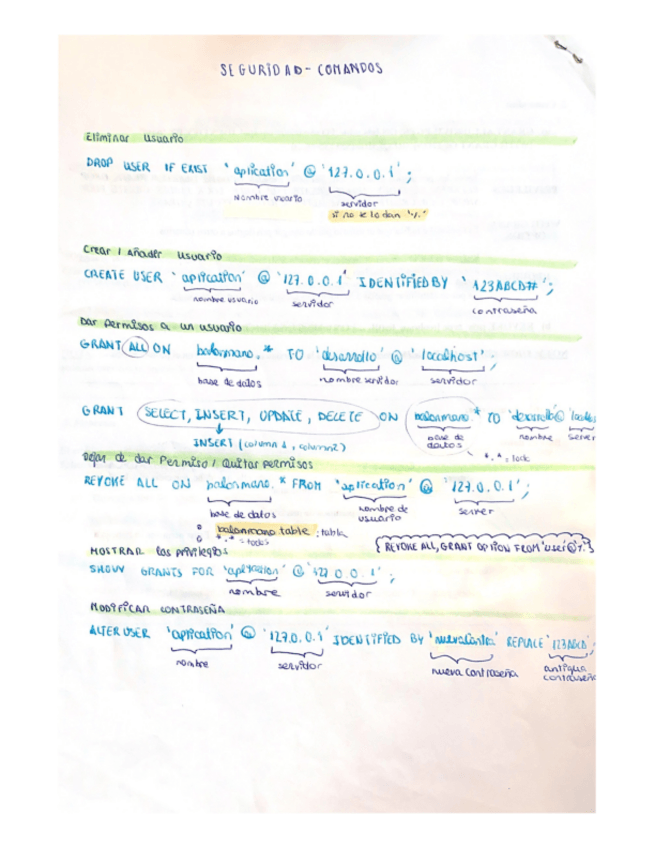 SEGURIDAD - COMANDOS
Eliminar usuario
DROP USER IF EXIST 'aplication' @ '127.0.0.1';
Nombre usuario servidor
si no te lo dan '%'
Crear / Añadir usuario
CREATE USER 'aplication' @ '127.0.0.1' IDENTIFIED BY '123ABCD#';
nombre usuario servidor contraseña
Dar permisos a un usuario
GRANT ALL ON balonmano.* TO 'desarrollo' @ 'localhost';
base de datos nombre servidor servidor
GRANT SELECT, INSERT, UPDATE, DELETE ON balonmano.* TO
INSERT (column 1, column 2) base de datos nombre server
*.* = todo
Dejar de dar Permiso / Quitar permisos
REVOKE ALL ON balonmano.* FROM 'aplication' @ '127.0.0.1';
base de datos nombre de usuario server
balonmano table : tabla
*.* = todos
{ REVOKE ALL, GRANT OPTION FROM 'user'@'%' }
MOSTRAR los privilegios
SHOW GRANTS FOR 'aplication' @ '127.0.0.1';
nombre servidor
MODIFICAR CONTRASEÑA
ALTER USER 'aplication' @ '127.0.0.1' IDENTIFIED BY REPLACE '123ABCD';
nombre servidor nueva contraseña antigua contraseña